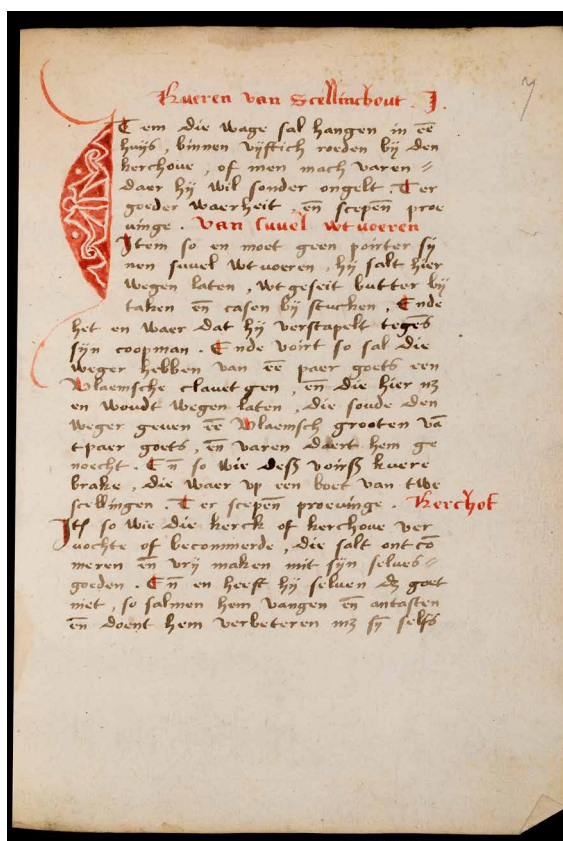 Kueren van Scellinchout . J .
7
Item die wage sal hangen in eē
huijs , binnen vijftich roeden bij den
kerchove , of men mach varen =
daer hij wil sonder ongelt . Ter
goeder waerheit , eñ scepen̄ proe
vinge . Van suvel wt voeren
Item so en moet geen poirter sij
nen suvel wt voeren , hij salt hier
wegen laten , wt geseit butter bij
taken en̄ casen bij stucken , Ende
het en waer dat hij verstapelt tegēs
sijn coopman . Ende voirt so sal die
weger hebben van eē paer goets een
Vlaemsche clavetgen , en̄ die hier nʒ
en woudt wegen laten , die soude den
weger geven eē Vlaemsch grooten vā
tpaer goets , en̄ varen daert hem ge
noecht . En̄ so wie desß voirsß kuere
brake , die waer vp een boet van twe
scellingen . Ter scepen̄ proevinge . Kerchof
Itē so wie die kerck of kerchove ver
vochte of becommerde , die salt ontcō
meren en̄ vrij maken mit sijn selves =
goeden . En̄ en heeft hij selven dʒ goet
niet , so salmen hem vangen en̄ antasten
en̄ doent hem verbeteren mʒ sȳ selfs